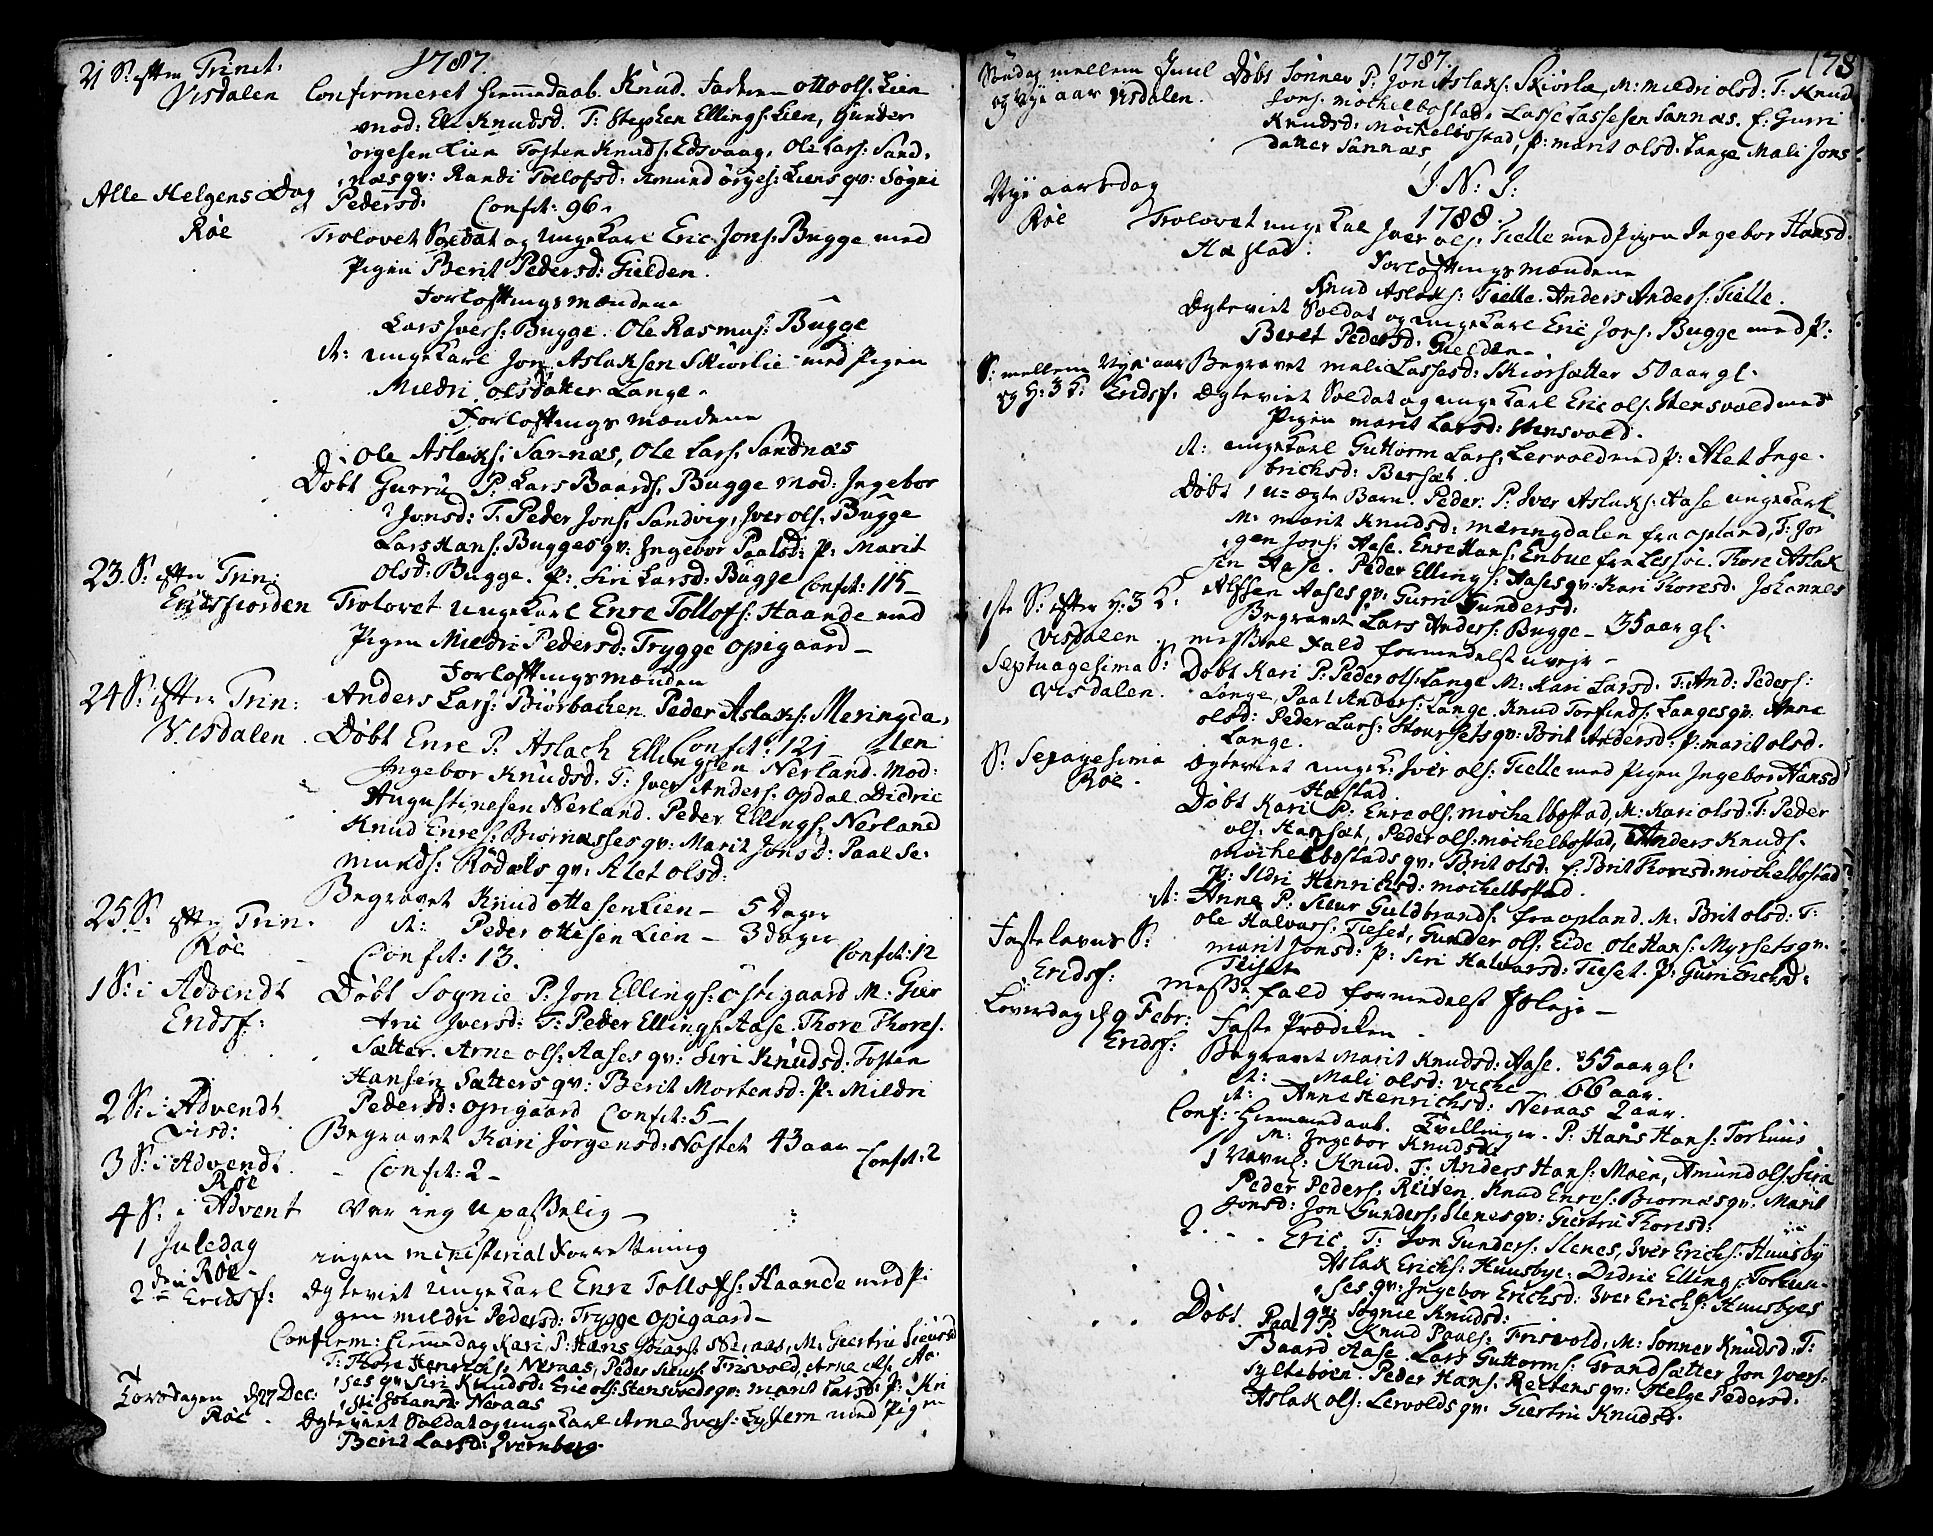 1787.
21 S: efter Trinit: Confirmeret Hiemmedaab. Knud. Faderen Otto ols: Lien
Visdalen
mod: Eli Knudsd. T: Stephen Ellings: Lien, Gunder
örgesen Lien Tosten Knuds: Edsvaag, Ole Lars: Sand,
næs qv: Randi Tollofsd: Amund örges: Liens qv: Sogni
Pedersd: Confit: 96
Alle Helgens Dag
Røe
Trolovet Soldat og Ungekarl Eric Jons: Bugge med
Pigen Berit Pedersd: Gielden.
Forloftningsmændene
Lars Ivers: Bugge. Ole Rasmus: Bugge
it: ungekarl Jon Aslaksen Skiorlie med Pigen
Mildri olsdatter Lange.
Forloftningsmændene
Ole Aslaks: Sannæs, Ole Lars: Sandnæs
Døbt Gurru P: Lars Baards: Bugge mod: Ingebor
Jonsd: T: Peder Jons: Sandvig, Iver ols: Bugge
Lars Hans: Bugges qv: Ingebor Paalsd: P: Marit
olsd: Bugge. P: Siri Larsd: Bugge Confit: 115
23. S: efter Trin:
Eridsfiorden Trolovet ungekarl Enre Tollofs: Haande med
Pigen Mildri Pedersd: Trygge opigaard
Forloftningsmænden
24 S: efter Trin: Anders Lars: Biörbachen. Peder Aslaks: Meringda,
len
Visdalen. Døbt Enre P: Aslach Ellingsen Nerland. Mod:
Confit: 121
Ingebor Knudsd. T: Iver Anders: opdal. Didric
Augustinesen Nerland. Peder Ellings: Nerland
Knud Enres: Biornæsses qv: Marit Jonsd: Paal Se:
munds: Rödals qv: Alet olsd:
25 S: efter Trin. Begravet Knud Ottesen Lien 5 Dager
it: Peder Ottesen Lien 3 dager
Røe Confit: 13. Confit: 12
1 S: i Advendt Døbt Sognie P: Jon Ellings: östigaard M: Gier
Eridsf: Arii Iversd: T: Peder Ellings: Aase. Thore Thores:
Sætter. Arne ols: Aases qv: Siri Knudsd: Tosten
Hansen Sætters qv: Berit Mortensd: P: Mildri
Pedersd: opigaard Confit: 5
2 S: i Advendt
Visd: Begravet Kari Jörgensd: Nostet 43 aar Confit: 2
3 S: i Advendt Confit: 2
Røe
4 S: i Advent Var ieg upasselig
1 Juledag
Røe ingen ministerial Forretning
2den Eridsf: Ægteviet Ungekarl Enre Tollofs: Haande med Pi
gen mildri Pedersd: Trygge opigaard
Confirm: Hiemmedag Kari, P: Hans Hans: Neraas, M: Giertru Siursd
T: Thore Henrichs: Neraas, Peder Siurs: Frisvold, Arne ols: Aa
ses qv: Siri Knudsd: Eric ols: Stensvolds qv: Marit Larsd: P: Kri
sti Johansd: Neraas
Torsdagen d 27 Dec:
Røe. Ægteviet Soldat og ungekarl Arne Ivers: med Pigen
Berit Larsd:
1787.
178
Søndag mellem Juul Døbt Sønner P: Jon Aslaks: Skiörlæ, M: mildri olsd: T: Knud
og Nye aar Visdalen. Jons: mochelbostad, Lasse Lassesen Sannæs. f: Gurri
Knudsd: Mochelbostad, P: marit olsd: Lange Mali Jons
datter Sannæs
J: N: J:
1788.
Nye aarsdag
Røe Trolovet ungekal Iver ols: Tielle med Pigen Ingebor Hansd.
Hæstad.
Forloftningsmændene
Knud Aslaks: Tielle. Anders Anders: Tielle.
Ægteviet Soldat og ungekarl Eric Jons: Bugge med P:
Beret Pedersd. Gielden
S: mellem Nye aar Begravet mali Lassesd: Skiorsætter 50 aar gl.
og H: 3 K: Eridsf. Ægteviet Soldat og ungekarl Eric ols: Stensvold med
Pigen marit Larsd: Stensvold.
it: ungekarl Guttorm Lars: Lervold med P: Alet Inge.
brichsd: Bersæt.
Døbt 1 u=ægte Barn. Peder. P: Iver Aslaks: Aase ungekarl.
M: marit Knudsd: meringdalen fra opland, T: Jor
gen Jons: Aase. Enre Hans: Enbue fra Lessøe. Thore Aslak
sen Aase. Peder Ellings: Aases qv: Kari Thoresd: Johannes
Alssen Aases qv: Gurri Gundersd:
1ste S: efter H: 3 K. Begravet Lars Anders: Bugge 35 aar gl.
Visdalen. messe Fald formedelst uveje
Septuagesima S: Døbt Kari P: Peder ols: Lange M: Kari Larsd. T: And: Peders:
Visdalen. Lange, Paal Anders: Lange. Knud Torfinds: Langes qv: Anne
olsd: Peder Lars: Stoursets qv: Brit Andersd: P: marit olsd.
Lange.
S: Sexagesima Ægteviet ungek: Iver ols: Tielle med Pigen Ingebor Hansd
Røe. Hæstad
Døbt Kari P: Enre ols: mochelbostad, M: Kari olsd: T: Peder
ols: Hansæt, Peder ols: mochelbostad, Anders Knuds.
mochelbostads qv: Brit olsd: f: Brit Thoresd: mochelbostad
P: Sidri Henrichsd: mochelbostad.
it: Anne P: Siur Guldbrands: fra opland. M: Brit olsd: T:
ole Halvars: Tieset, Gunder ols: Eide ole Hans: Myrsets qv.
Fastelavns S: marit Jonsd: P: Siri Halvarsd: Tieset. P: Gurri Ericsd:
Tiiset
Eridsf: messe fald formedelst Isleje
Löverdag d 9 Febr: Faste Prædiken
Eridsf: Begravet Marit Knudsd: Aase. 55 aar gl.
it: Mali olsd: Viche 66 aar.
it: Anne Henrichsd: Neraas 2 aar.
Conf: Hiemmedaab. Tvillinger. P: Hans Hans: Torhuus
M: Ingebor Knudsd:
1 Navnl: Knud. T: Anders Hans: Moen, Amund ols: Lira
Peder Peders: Reiten. Knud Enres: Biornæs qv: Marit
Jonsd: Jon Gunders: Slenes qv: Giertru Thoresd:
2. Eric T: Jon Gunders: Slenes, Iver Erichs: Huusby
Aslak Erichs: Huusbye: Didric Ellings: Torhuu
ses qv: Ingebor Erichsd: Iver Erichs: Huusbyes
qv: Sognie Knudsd:
Døbt. Paal P: Knud Paals: Frisvold, M: Sonner Knudsd: T:
Baard Aase. Lars Guttorms: Grandsætter Jon Ivers:
Sylteböen. Peder Hans: Reitens qv: Helge Pedersd.
Aslak ols: Lervolds qv: Giertru Knudsd.